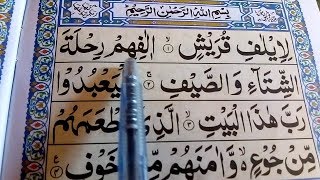 بِسْمِ اللهِ الرَّحْمٰنِ الرَّحِيْمِ
لِاِيْلٰفِ قُرَيْشٍ ۙ﴿۱﴾ اٖلٰفِهِمْ رِحْلَةَ
الشِّتَآءِ وَالصَّيْفِ ۚ﴿۲﴾ فَلْيَعْبُدُوْا
رَبَّ هٰذَا الْبَيْتِ ۙ﴿۳﴾ الَّذِيْۤ اَطْعَمَهُمْ
مِّنْ جُوْعٍ ۙ وَّاٰمَنَهُمْ مِّنْ خَوْفٍ ﴿۴﴾